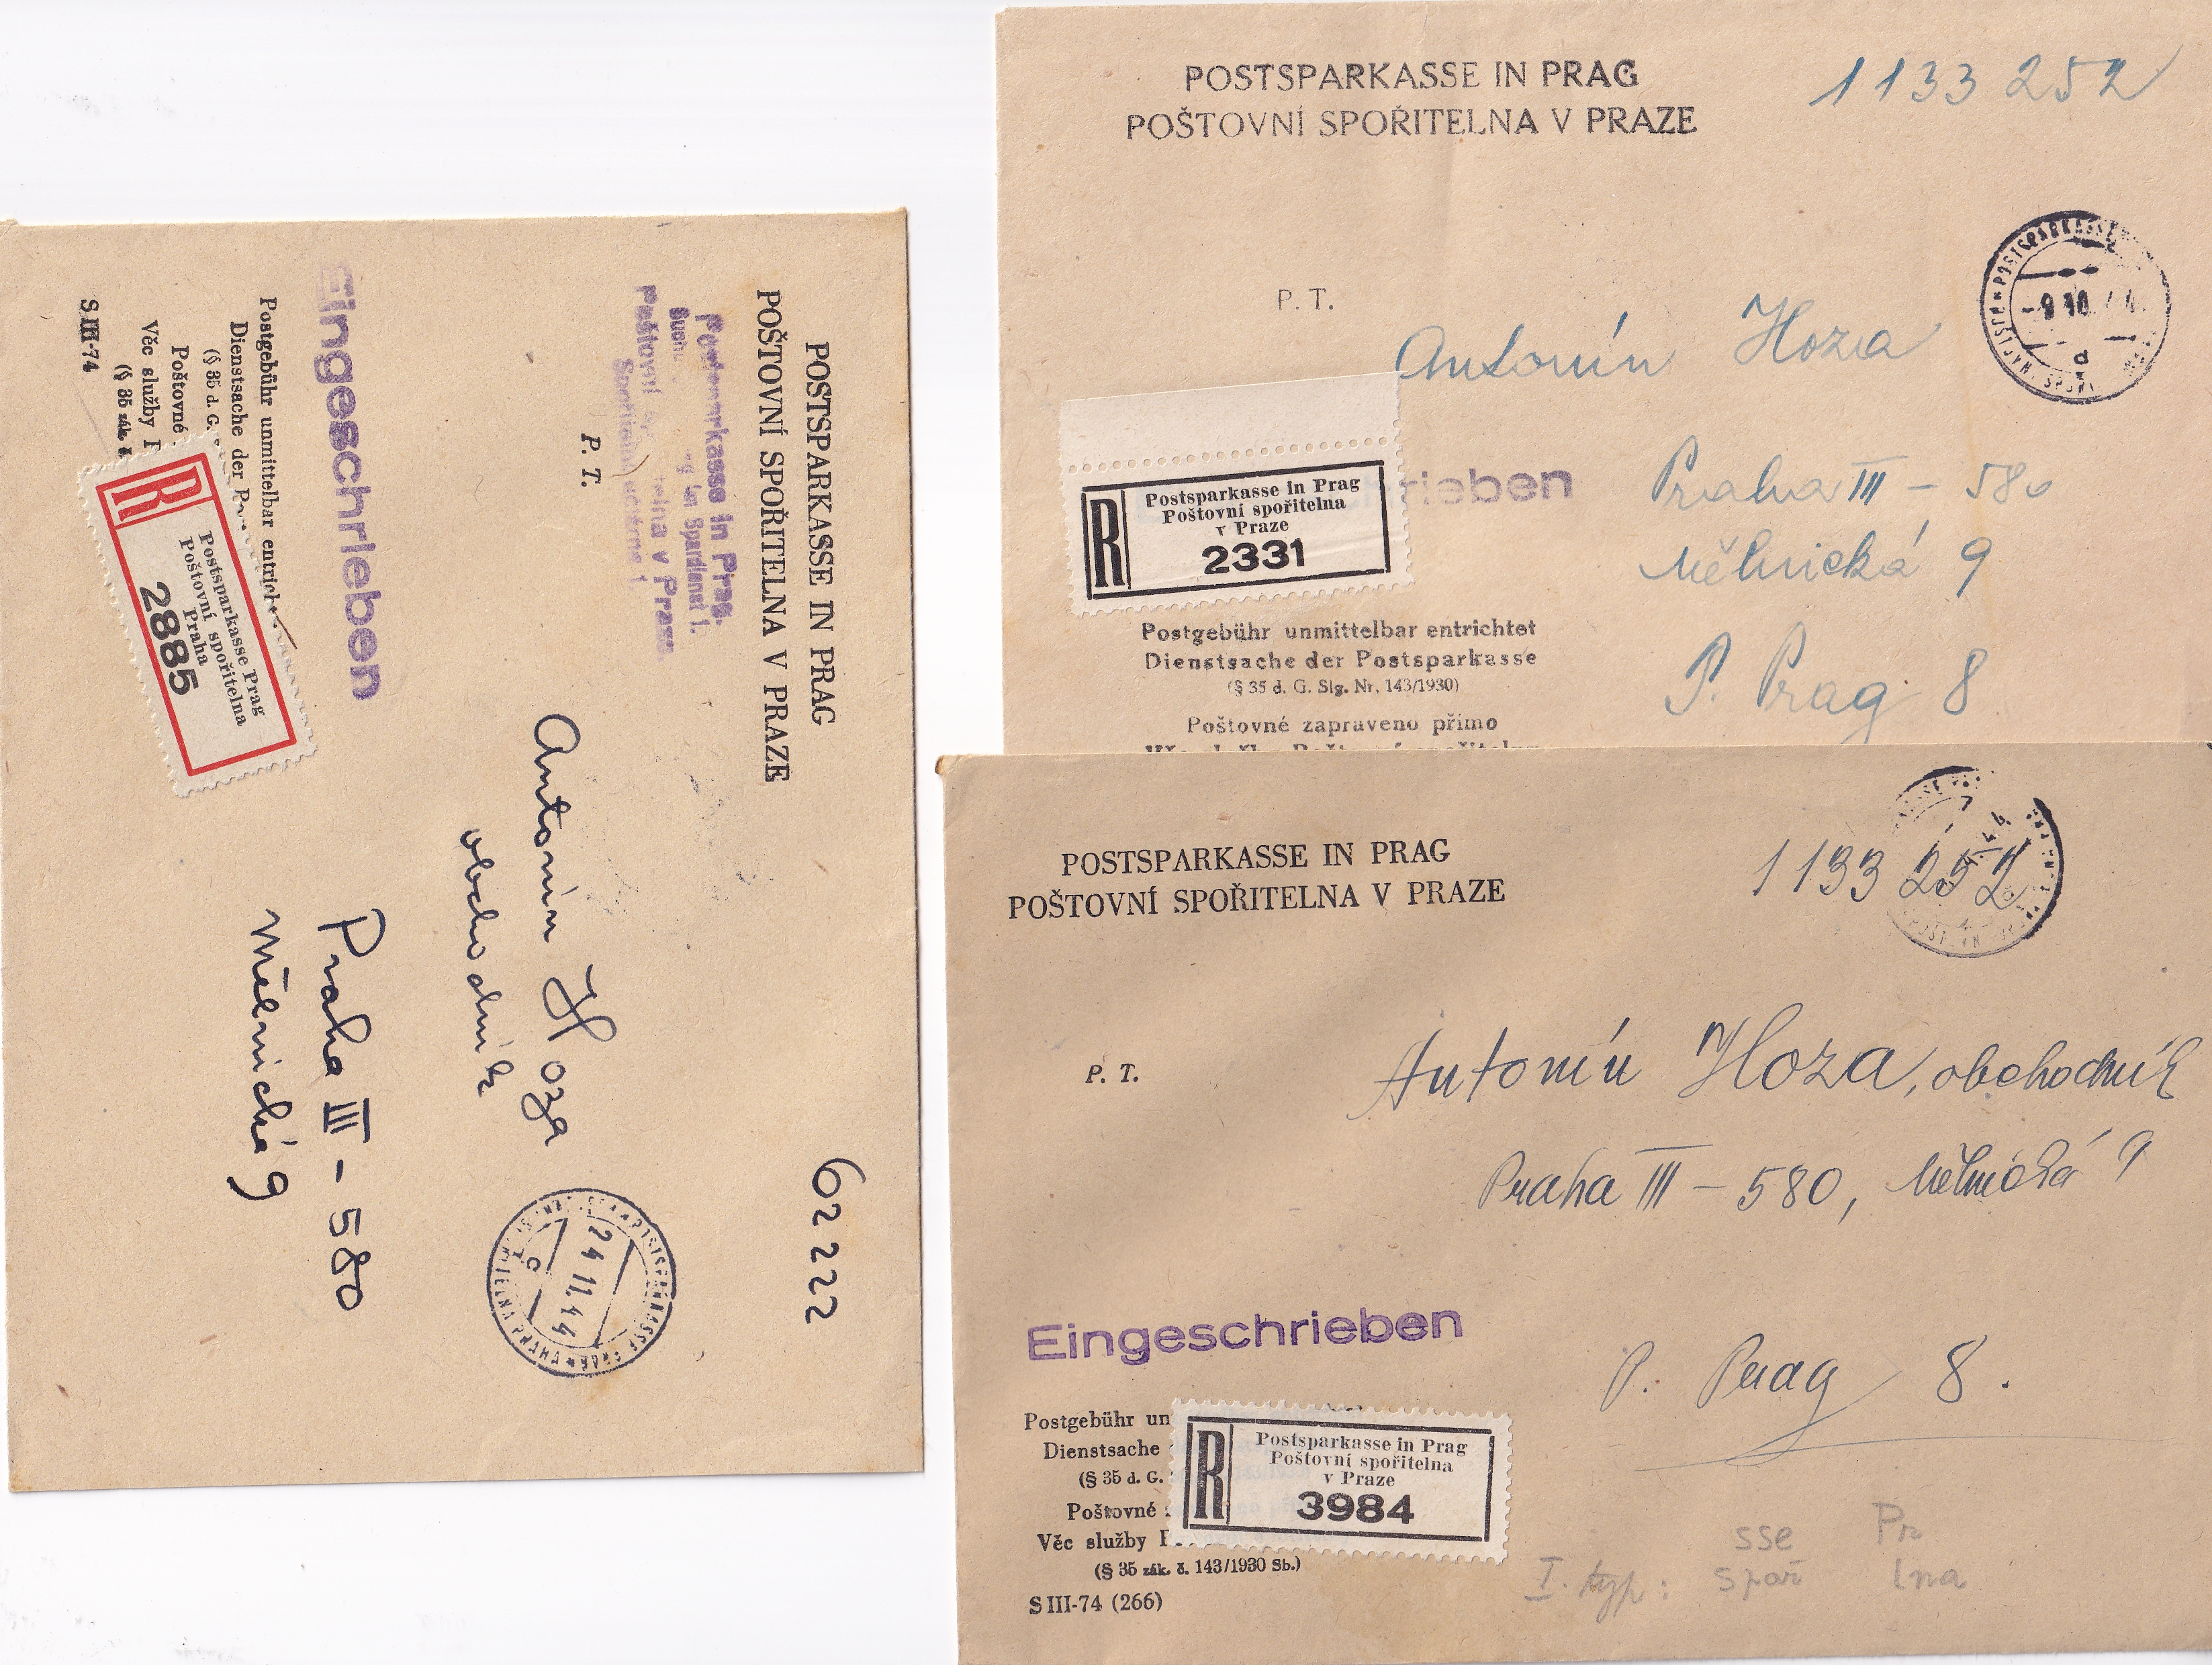 POSTSPARKASSE IN PRAG
POŠTOVNÍ SPOŘITELNA V PRAZE
62222
Postsparkasse in Prag.
in Spardienst 1.
Poštovní
telna v Praze.
P. T.
Antonín Hoza
obchodník
Praha III - 580
Mělnická 9
24 11. 44
c
Eingeschrieben
Postgebühr unmittelbar
Dienstsache der
(§ 35 d. G.
Poštovné
Věc služby
(§ 35 zák.
S III-74
R
Postsparkasse Prag
Poštovní spořitelna
Praha
2885
POSTSPARKASSE IN PRAG
POŠTOVNÍ SPOŘITELNA V PRAZE
1133 252
POSTSPARKASSE
-9 10
a
P. T.
Antonín Hoza
rieben
Praha III - 580
Mělnická 9
P. Prag 8
R
Postsparkasse in Prag
Poštovní spořitelna
v Praze
2331
Postgebühr unmittelbar entrichtet
Dienstsache der Postsparkasse
(§ 35 d. G. Slg. Nr. 143/1930)
Poštovné zapraveno přímo
POSTSPARKASSE IN PRAG
POŠTOVNÍ SPOŘITELNA V PRAZE
1133 252
P. T.
Antonín Hoza, obchodník
Praha III - 580, Mělnická 9
Eingeschrieben
P. Prag 8.
Postgebühr un
Dienstsache
(§ 35 d. G.
Poštovné
Věc služby
(§ 35 zák. č. 143/1930 Sb.)
S III-74 (266)
R
Postsparkasse in Prag
Poštovní spořitelna
v Praze
3984
sse Pr
I. typ: spoř lna